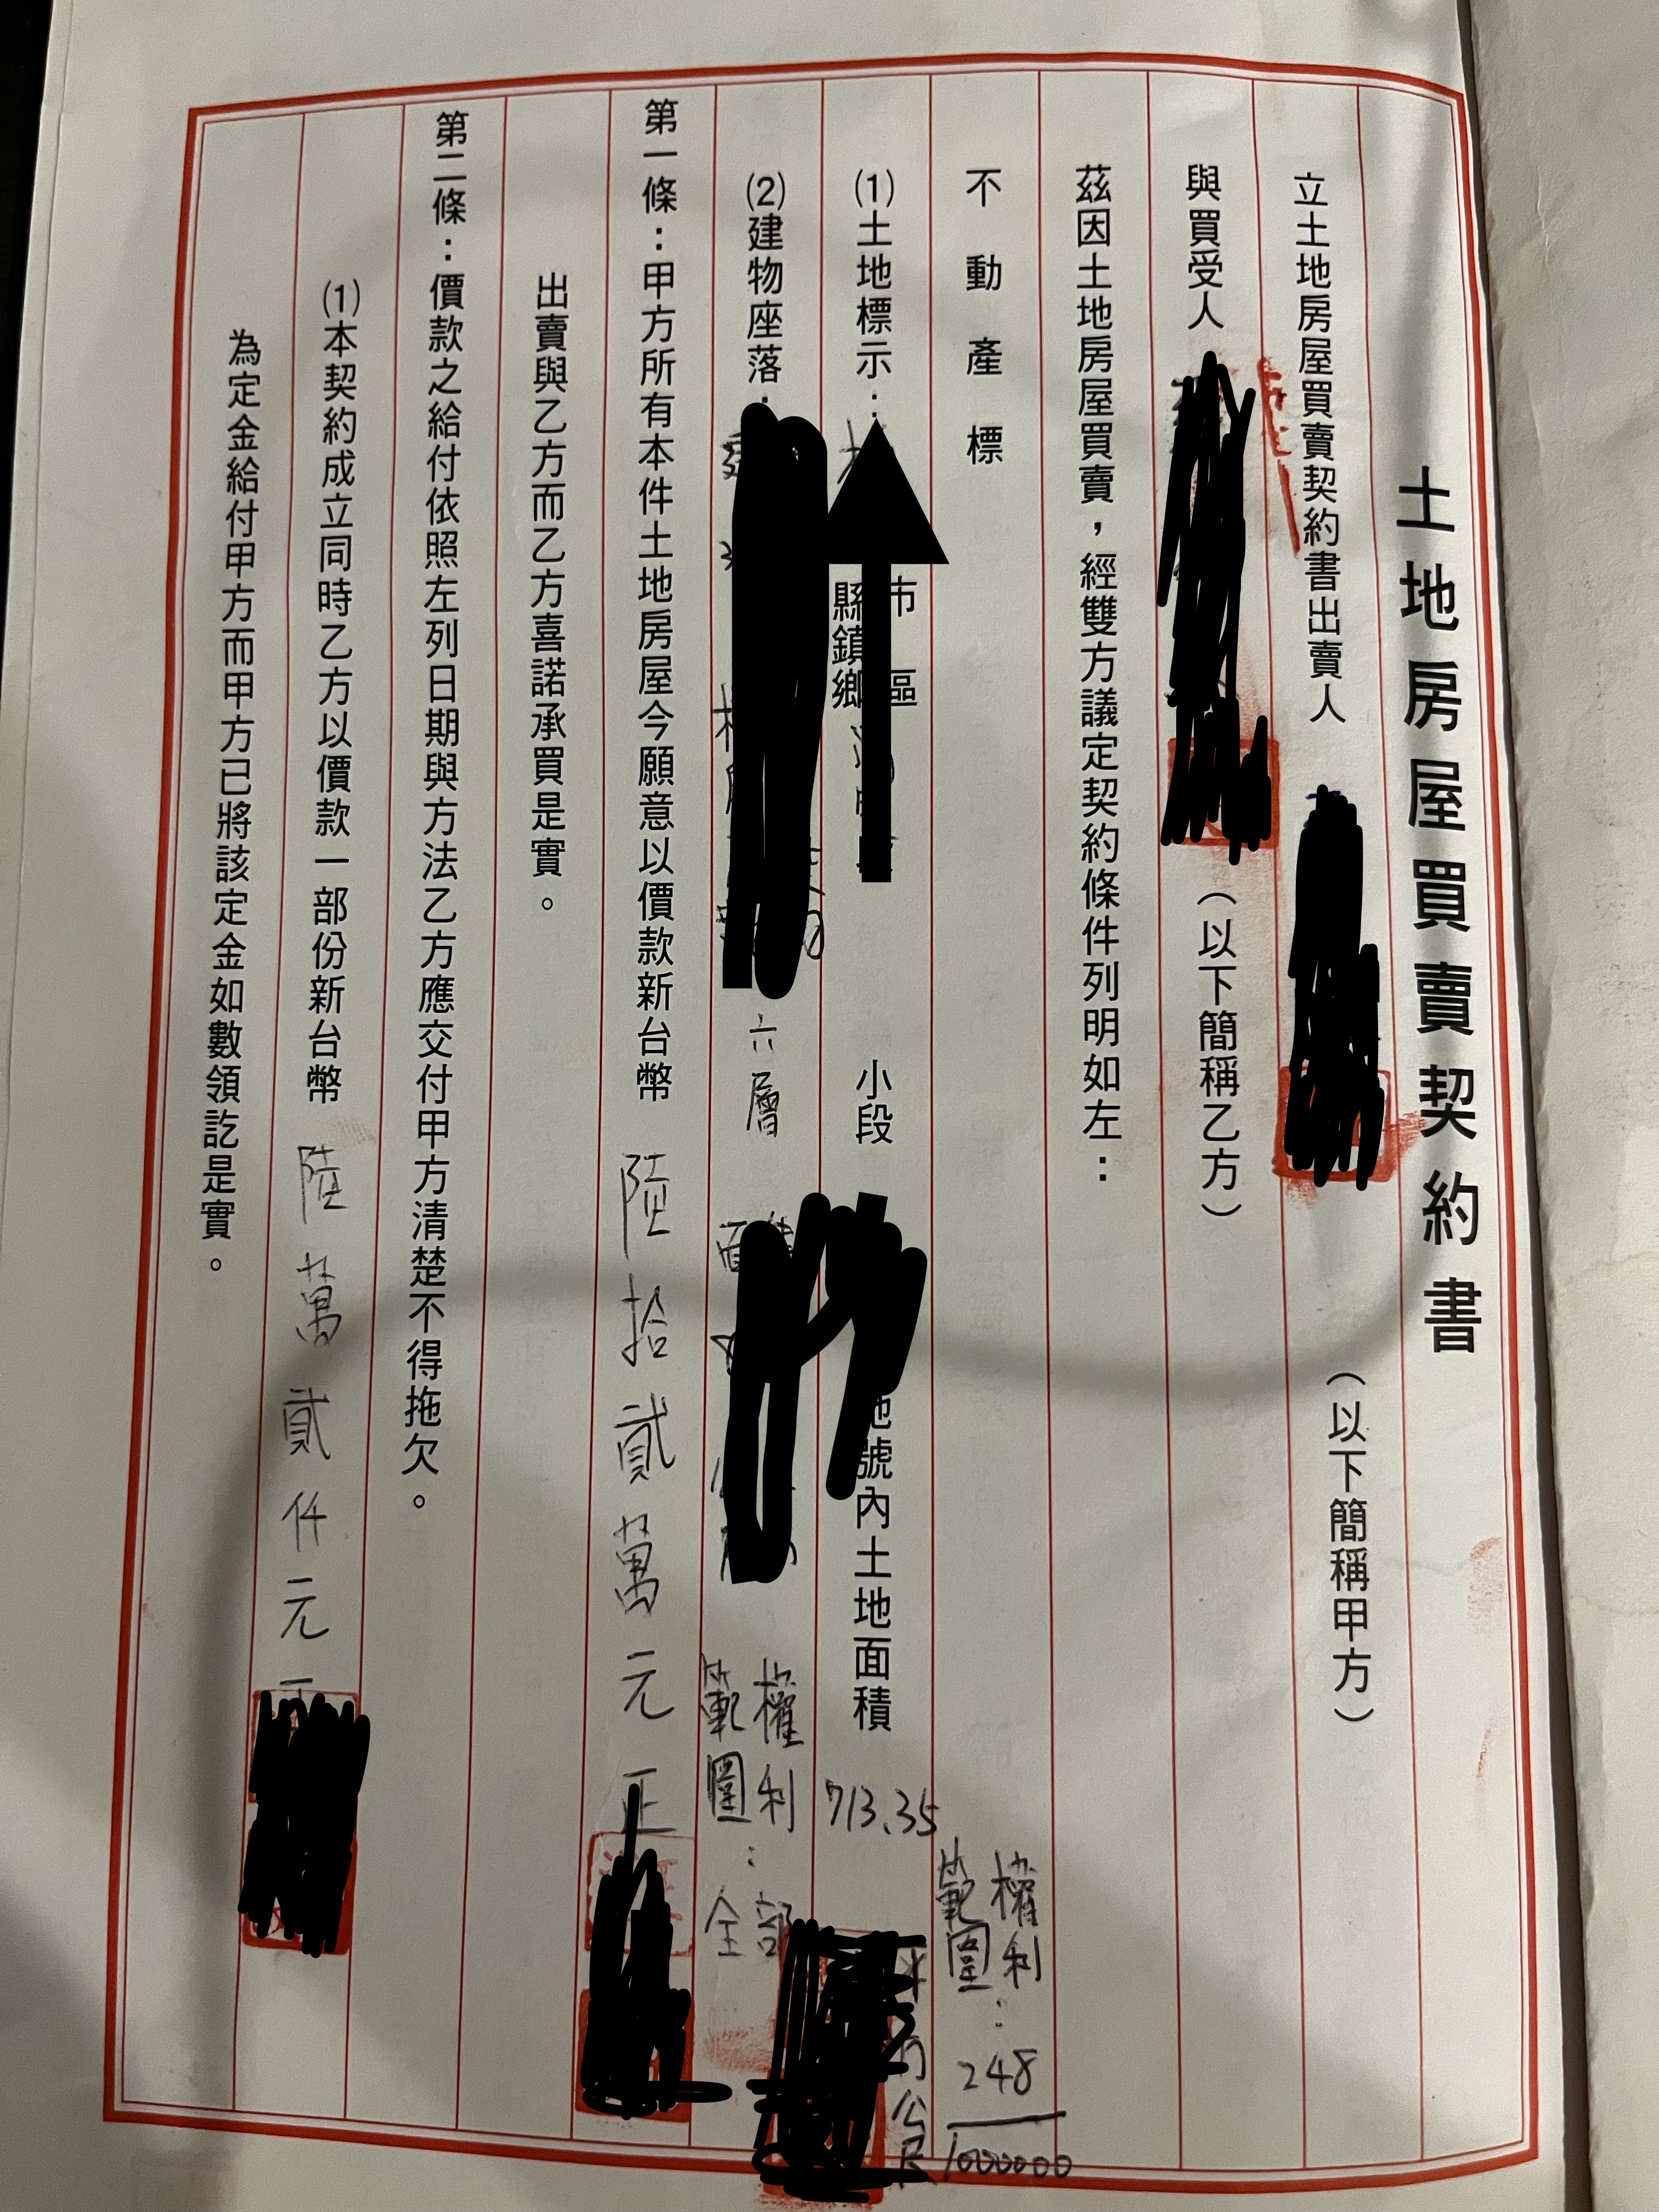 土地房屋買賣契約書
立土地房屋買賣契約書出賣人（以下簡稱甲方）
與買受人（以下簡稱乙方）
茲因土地房屋買賣，經雙方議定契約條件列明如左：
不動產標
權利範圍：248/1000000
(1)土地標示：市 區 縣鎮鄉 小段 地號內土地面積 713.35 平方公尺
(2)建物座落： 六層 權利範圍：全部
第一條：甲方所有本件土地房屋今願意以價款新台幣 陸拾貳萬元正
出賣與乙方而乙方喜諾承買是實。
第二條：價款之給付依照左列日期與方法乙方應交付甲方清楚不得拖欠。
(1)本契約成立同時乙方以價款一部份新台幣 陸萬貳仟元
為定金給付甲方而甲方已將該定金如數領訖是實。